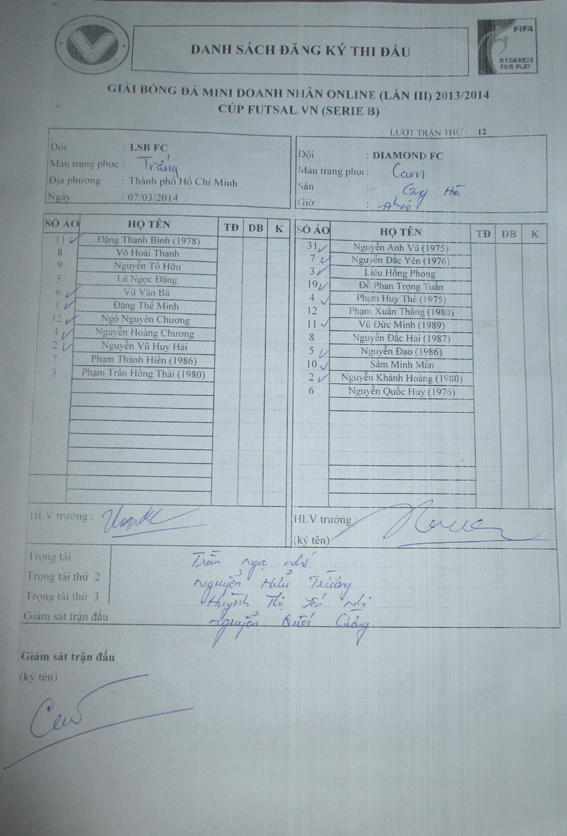 DANH SÁCH ĐĂNG KÝ THI ĐẤU
FIFA
MY GAME IS
FAIR PLAY
GIẢI BÓNG ĐÁ MINI DOANH NHÂN ONLINE (LẦN III) 2013/2014
CÚP FUTSAL.VN (SERIE B)
LƯỢT TRẬN THỨ : 12
Đội : LSB FC
Màu trang phục : Trắng
Địa phương : Thành phố Hồ Chí Minh
Ngày : 07/03/2014
Đội : DIAMOND FC
Màu trang phục : Cam
Sân :
Giờ :
SỐ ÁO HỌ TÊN TĐ DB K
11 Đặng Thanh Bình (1978)
8 Võ Hoài Thanh
9 Nguyễn Tố Hữu
5 Lê Ngọc Đăng
6 Vũ Văn Bá
1 Đặng Thế Minh
12 Ngô Nguyên Chương
4 Nguyễn Hoàng Chương
2 Nguyễn Vũ Huy Hải
7 Phạm Thành Hiển (1986)
3 Phạm Trần Hồng Thái (1980)
SỐ ÁO HỌ TÊN TĐ DB K
31 Nguyễn Anh Vũ (1975)
7 Nguyễn Đắc Yên (1976)
3 Liêu Hồng Phong
19 Đỗ Phan Trọng Tuấn
4 Phạm Huy Thế (1975)
12 Phạm Xuân Thăng (1980)
11 Vũ Đức Minh (1989)
8 Nguyễn Đắc Hải (1987)
5 Nguyễn Đạo (1986)
10 Sầm Minh Mẫn
2 Nguyễn Khánh Hoàng (1980)
6 Nguyễn Quốc Huy (1976)
HLV trưởng :
HLV trưởng :
(ký tên)
Trọng tài Trần
Trọng tài thứ 2 Nguyễn Hữu
Trọng tài thứ 3 Huỳnh Thị
Giám sát trận đấu Nguyễn Quốc
Giám sát trận đấu
(ký tên)